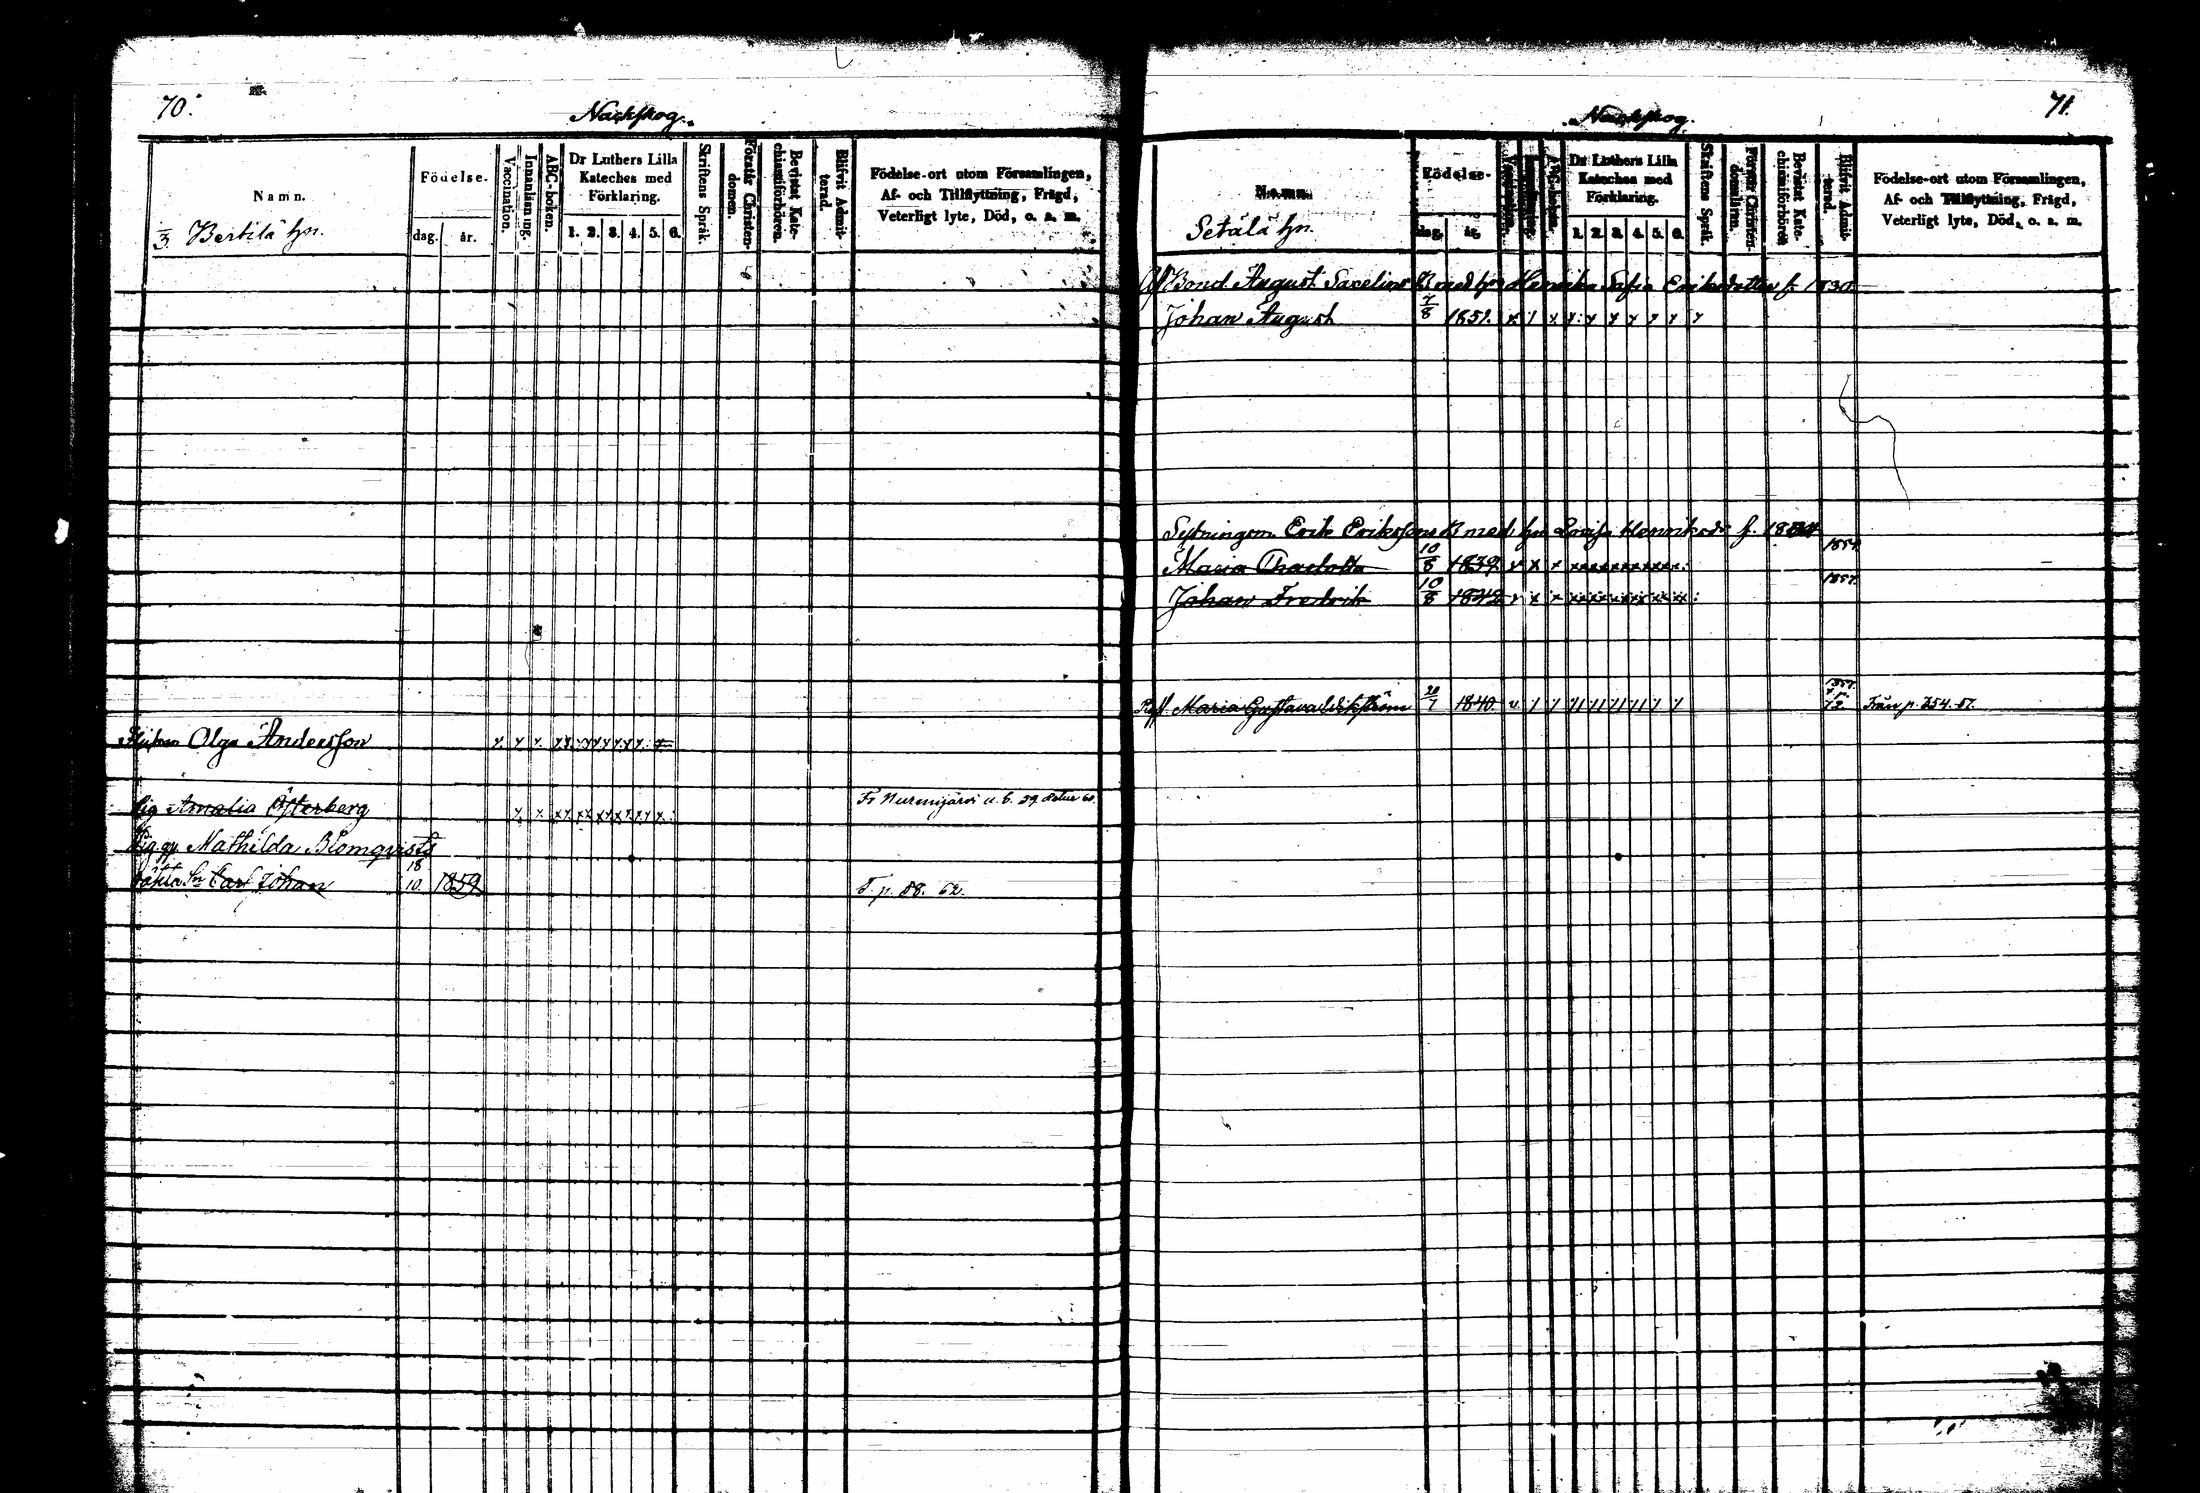 70.
Nackskog.
Namn.
Födelse.
dag. år.
Vaccination.
Innanläsning.
ABC-boken.
Dr Luthers Lilla
Kateches med
Förklaring.
1. 2. 3. 4. 5. 6.
Skriftens Språk.
Förstår Christen-
domen.
Bevistat Kate-
chismiförhören.
Blifvit Admit-
terad.
Födelse-ort utom Församlingen,
Af- och Tillflyttning, Frägd,
Veterligt lyte, Död, o. a. m.
Bertilä hn.
Olga Andersson
Pig Amalia Österberg Fr Nurmijärvi u. b. 59.
Mathilda Blomqvists
oäkta Sn Carl Johan 18/10 1859 T. p. 88. 62.
71.
Nackskog.
Namn.
Födelse-
dag. år.
Vaccination.
Innanläsning.
ABC-boken.
Dr Luthers Lilla
Kateches med
Förklaring.
1. 2. 3. 4. 5. 6.
Skriftens Språk.
Förstår Christen-
domsläran.
Bevistat Kate-
chismiförhören
Blifvit Admit-
terad.
Födelse-ort utom Församlingen,
Af- och Tillflyttning, Frägd,
Veterligt lyte, Död, o. a. m.
Setälä hn.
Bond. August Savelins B med hn Henrika Sofia Eriksdotter f. 1830.
Johan August 7/8 1851.
Sytningsm. Erik Erikssons B med hn Lovisa Henriksdr f.
Maria Charlotta 10/8 1839 1854.
Johan Fredrik 10/8 1842 1857.
Maria Gustava Wikström 20/7 1840. 1857. Från p. 254. 57.